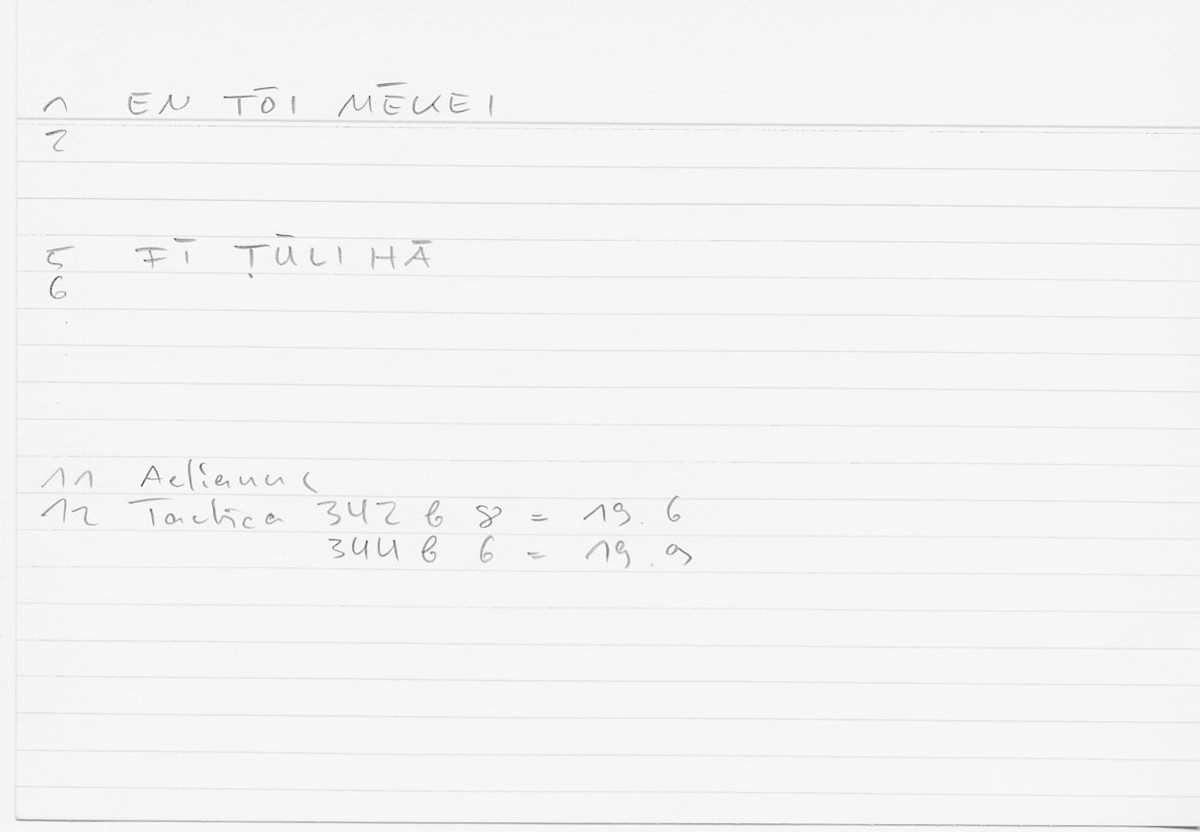 1 EN TŌI MĒKEI
2
5 FĪ ṬŪLIHĀ
6
11 Aelianus
12 Tactica 342 b 8 = 19.6
344 b 6 = 19.9